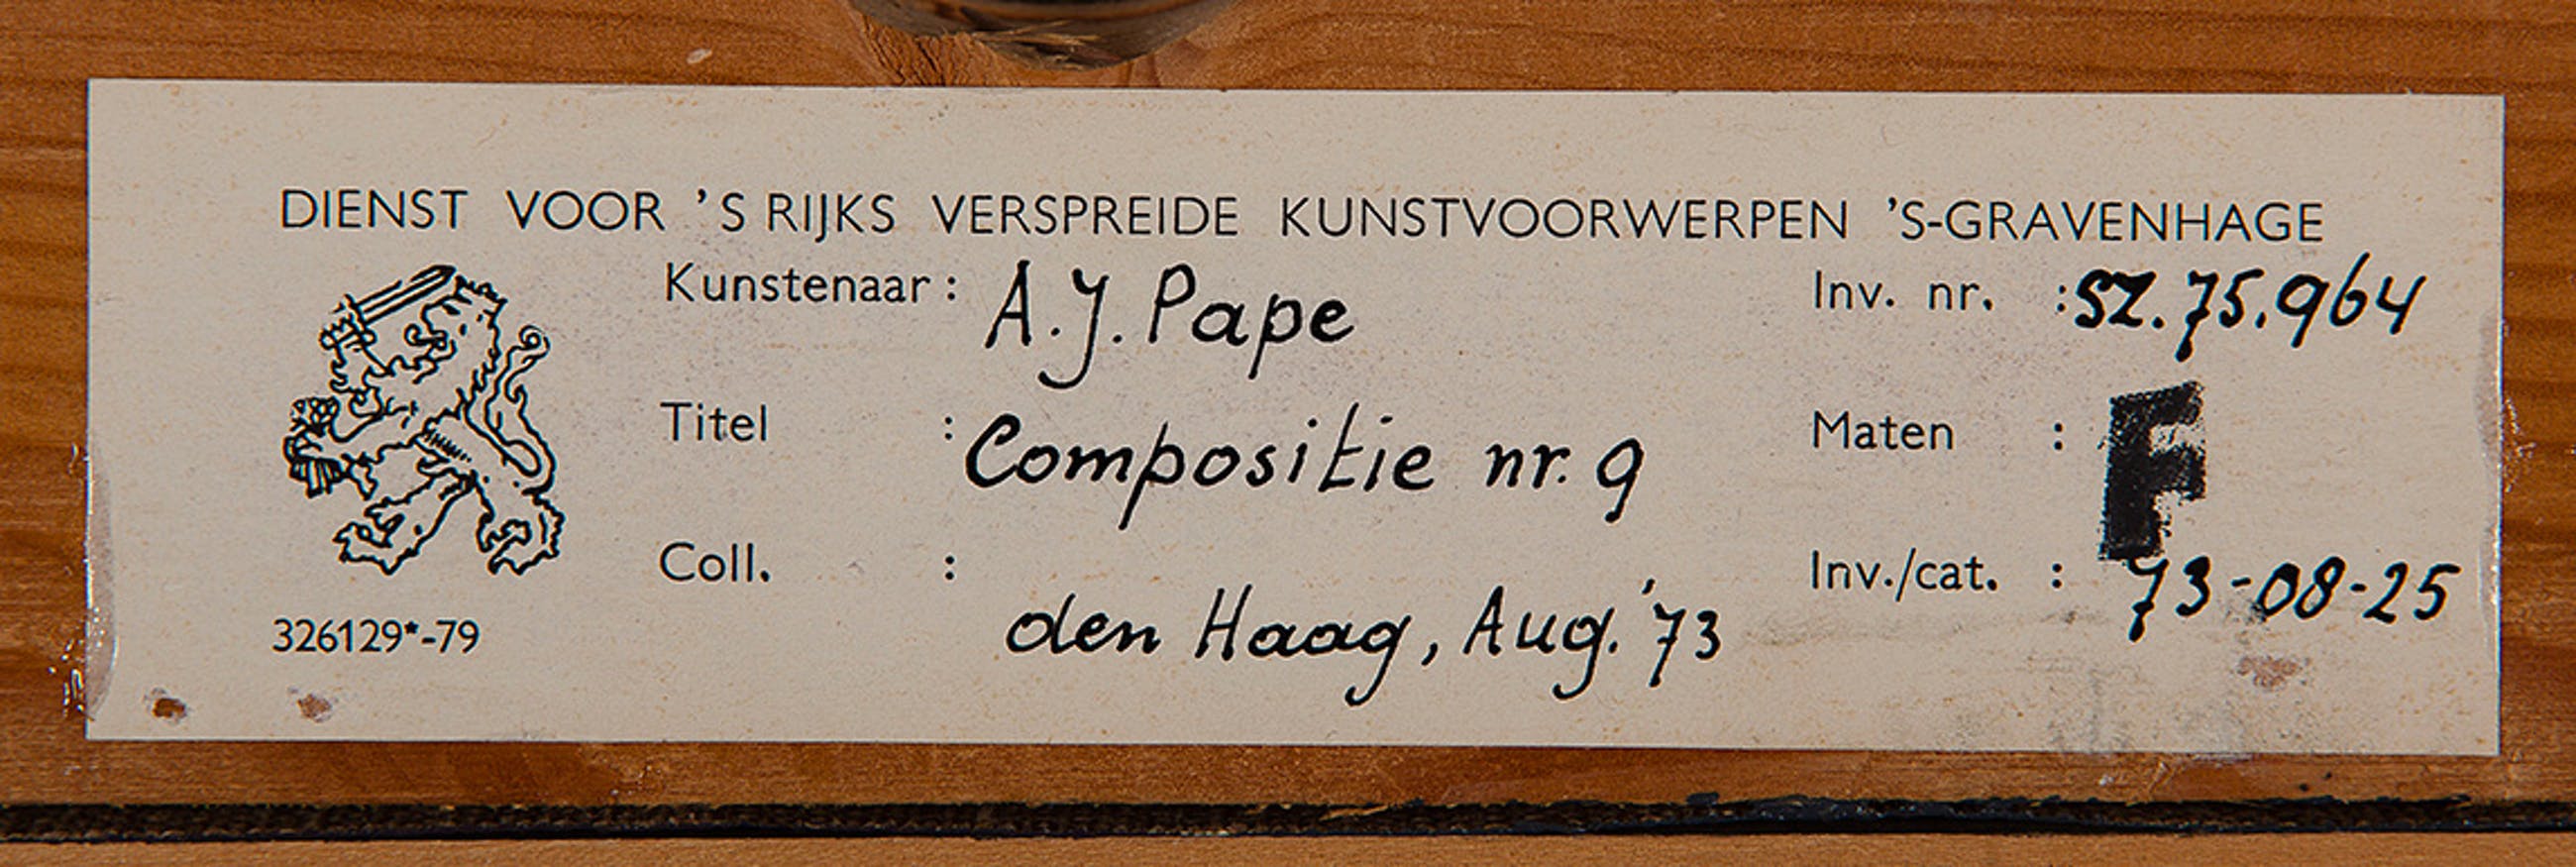 DIENST VOOR 'S RIJKS VERSPREIDE KUNSTVOORWERPEN 'S-GRAVENHAGE
Kunstenaar : A.J. Pape Inv. nr. : SZ.75.964
Titel : Compositie nr. 9 Maten : F
Coll. : Inv./cat. : 73-08-25
den Haag, Aug. '73
326129*-79